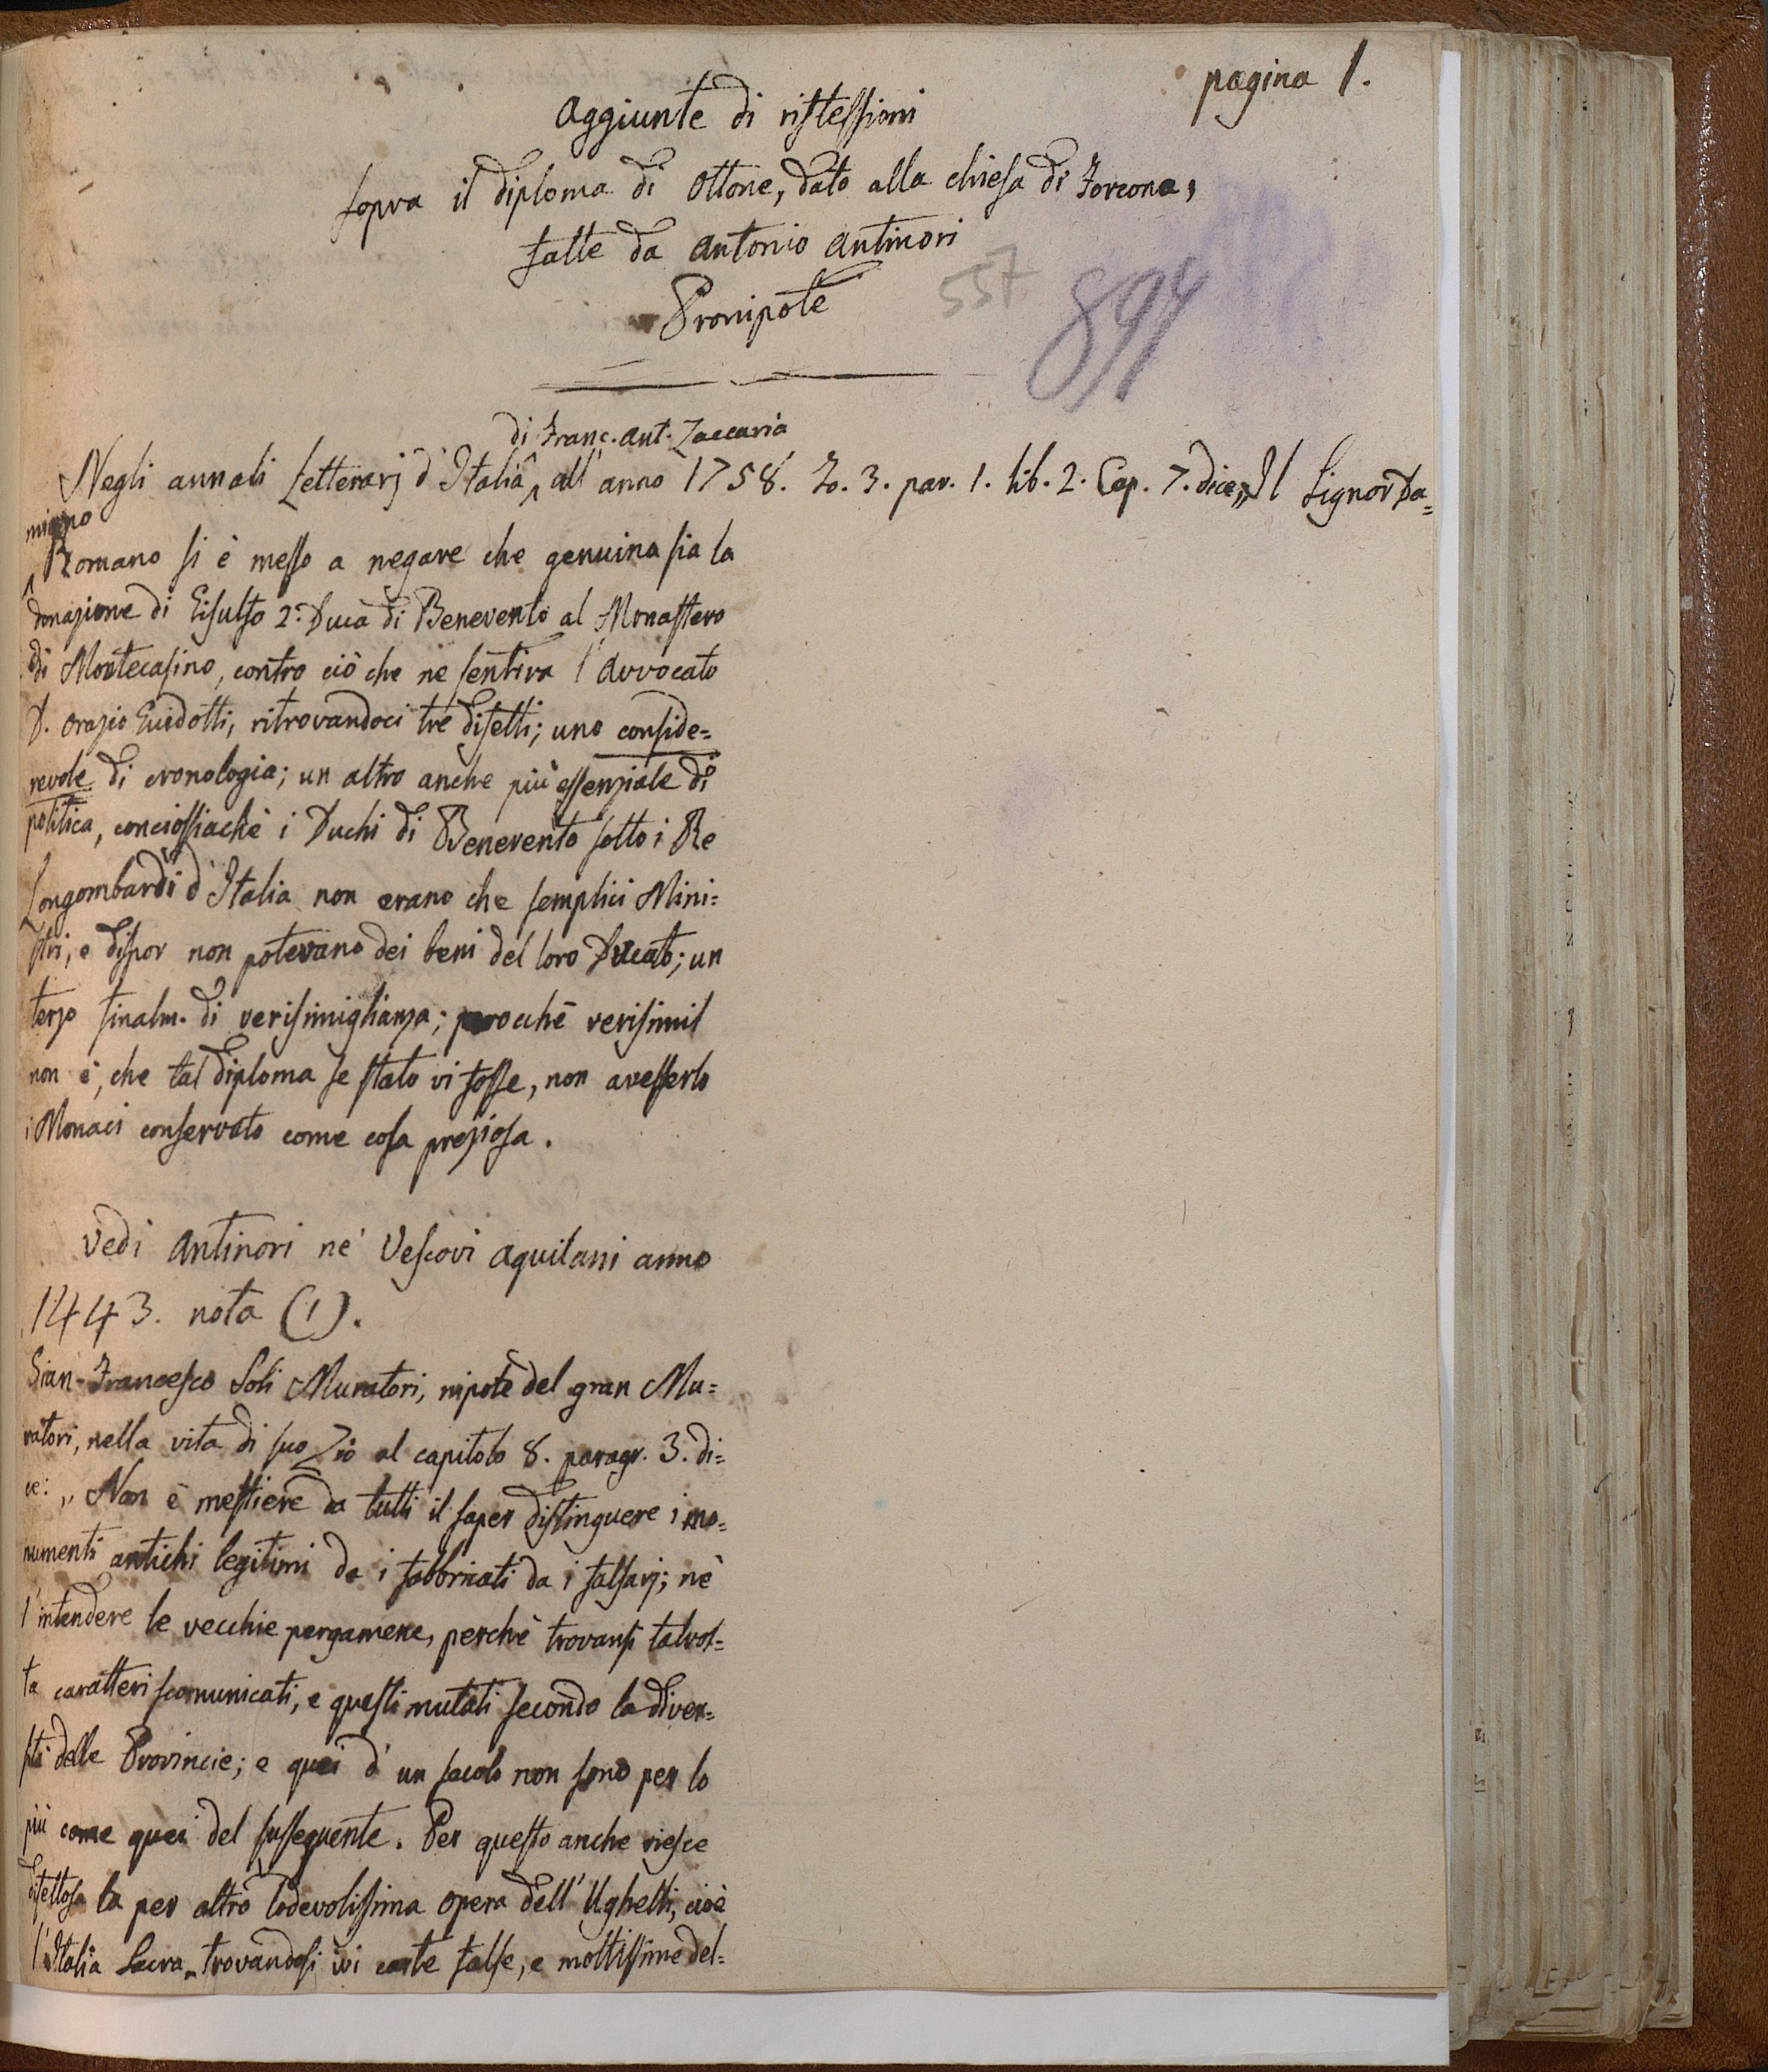 pagina 1.
Aggiunte di riflessioni
sopra il diploma di Ottone, dato alla chiesa di Forcona,
fatte da Antonio Antinori
Pronipote
557
894
di Franc. Ant. Zaccaria
Negli annali Letterarj d'Italia all'anno 1758. To. 3. par. 1. lib. 2. Cap. 7. dice „Il Signor Da=
miano
Romano si è messo a negare che genuina sia la
donazione di Gisulfo 2.º Duca di Benevento al Monastero
di Montecasino, contro ciò che ne sentiva l'Avvocato
D. Orazio Guidotti, ritrovandoci tre difetti; uno conside=
revole di cronologia; un altro anche più essenziale di
politica, conciossiachè i Duchi di Benevento sotto i Re
Longombardi d'Italia non erano che semplici Mini=
stri, e dispor non potevano dei beni del loro Ducato; un
terzo finalm. di verisimiglianza; perocchè verisimil
non è, che tal diploma se stato vi fosse, non avesserlo
i Monaci conservato come cosa preziosa.
Vedi Antinori ne' Vescovi Aquilani anno
1443. nota (1).
Gian-Francesco Soli Muratori, nipote del gran Mu=
ratori, nella vita di suo Zio al capitolo 8. paragr. 3. di=
ce: „Non è mestiere da tutti il saper distinguere i mo=
numenti antichi legitimi da i fabbricati da i falsarj; nè
l'intendere le vecchie pergamene, perchè trovansi talvol=
ta caratteri scomunicati, e questi mutati secondo la diver=
sità delle Provincie; e quei d'un secolo non sono per lo
più come quei del susseguente. Per questo anche riesce
difettosa la per altro lodevolissima opera dell'Ughelli, cioè
l'Italia Sacra, trovandosi ivi carte false, e moltissime del=